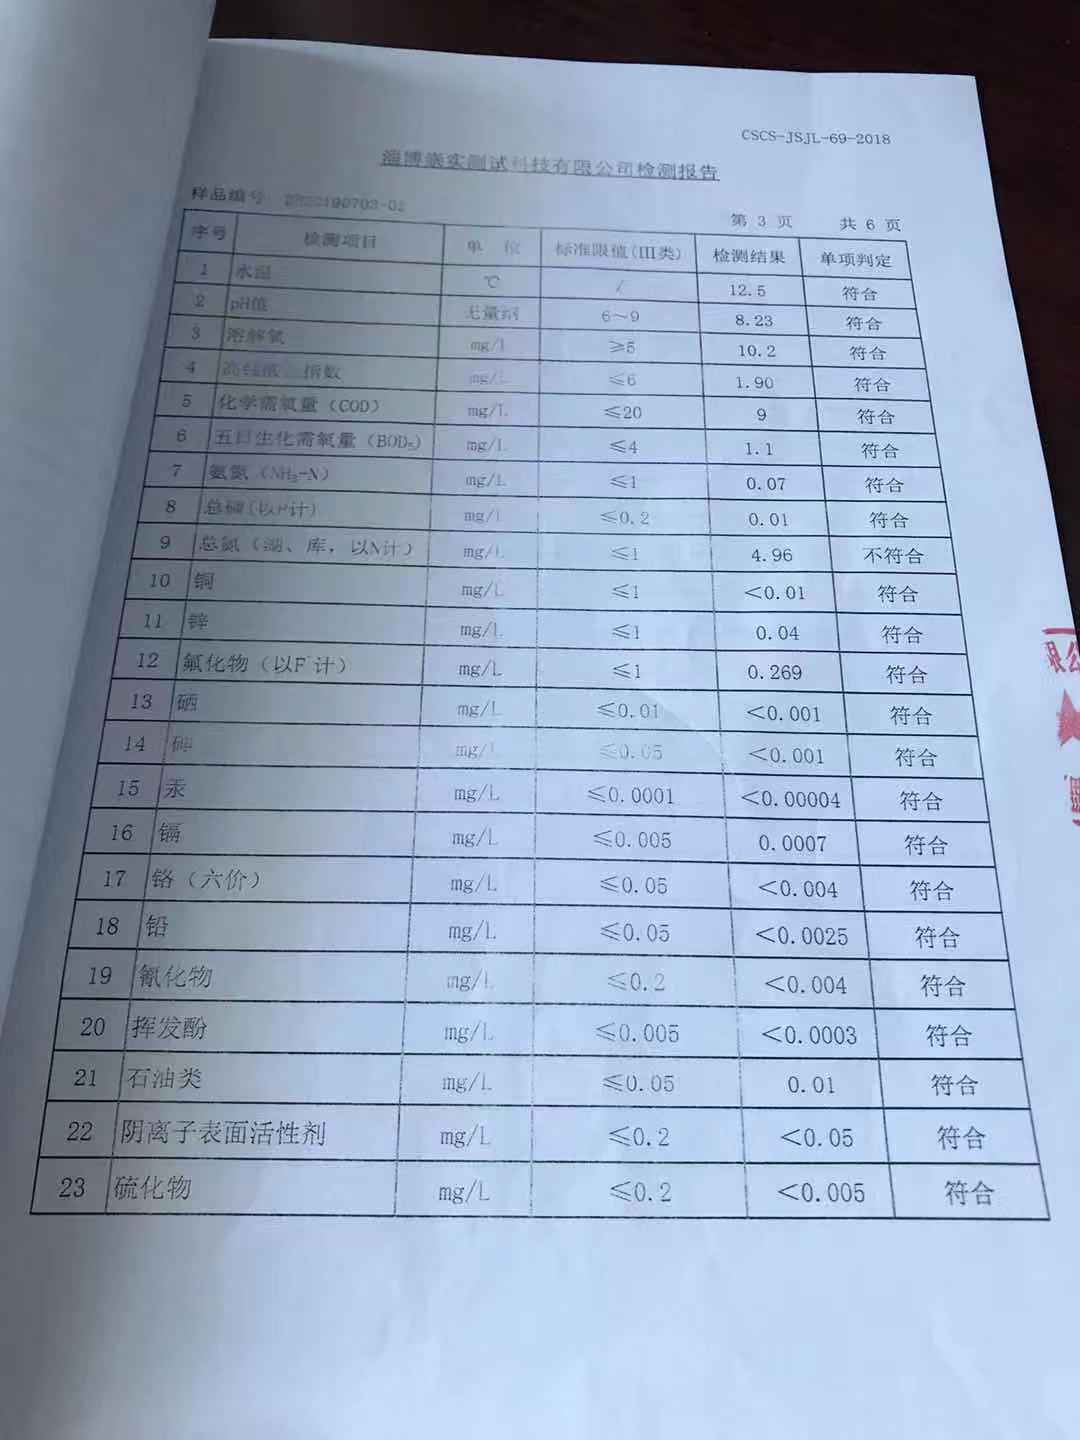 CSCS-JSJL-69-2018
淄博嵩实测试科技有限公司检测报告
样品编号 190703-02
第 3 页 共 6 页
序号 检测项目 单 位 标准限值(III类) 检测结果 单项判定
1 水温 ℃ / 12.5 符合
2 pH值 无量纲 6～9 8.23 符合
3 溶解氧 mg/L ≥5 10.2 符合
4 高锰酸 指数 mg/L ≤6 1.90 符合
5 化学需氧量（COD） mg/L ≤20 9 符合
6 五日生化需氧量（BOD₅） mg/L ≤4 1.1 符合
7 氨氮（NH₃-N） mg/L ≤1 0.07 符合
8 总磷(以P计) mg/L ≤0.2 0.01 符合
9 总氮（湖、库，以N计） mg/L ≤1 4.96 不符合
10 铜 mg/L ≤1 <0.01 符合
11 锌 mg/L ≤1 0.04 符合
12 氟化物（以F⁻计） mg/L ≤1 0.269 符合
13 硒 mg/L ≤0.01 <0.001 符合
14 砷 mg/L ≤0.05 <0.001 符合
15 汞 mg/L ≤0.0001 <0.00004 符合
16 镉 mg/L ≤0.005 0.0007 符合
17 铬（六价） mg/L ≤0.05 <0.004 符合
18 铅 mg/L ≤0.05 <0.0025 符合
19 氰化物 mg/L ≤0.2 <0.004 符合
20 挥发酚 mg/L ≤0.005 <0.0003 符合
21 石油类 mg/L ≤0.05 0.01 符合
22 阴离子表面活性剂 mg/L ≤0.2 <0.05 符合
23 硫化物 mg/L ≤0.2 <0.005 符合
限公